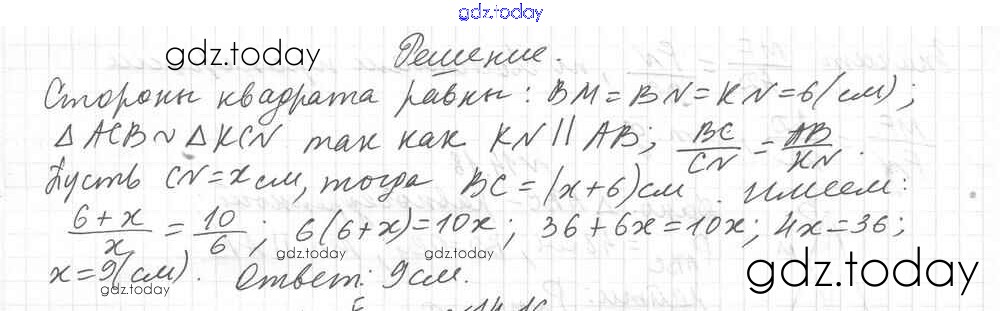 gdz.today
gdz.today
Решение.
Стороны квадрата равны: BM=BN=KN=6(см);
△ACB~△KCN так как KN||AB; BC/CN = AB/KN.
Пусть CN=x см, тогда BC=(x+6)см. имеем:
6+x/x = 10/6; 6(6+x)=10x; 36+6x=10x; 4x=36;
gdz.today gdz.today
x=9(см). Ответ: 9см.
gdz.today gdz.today